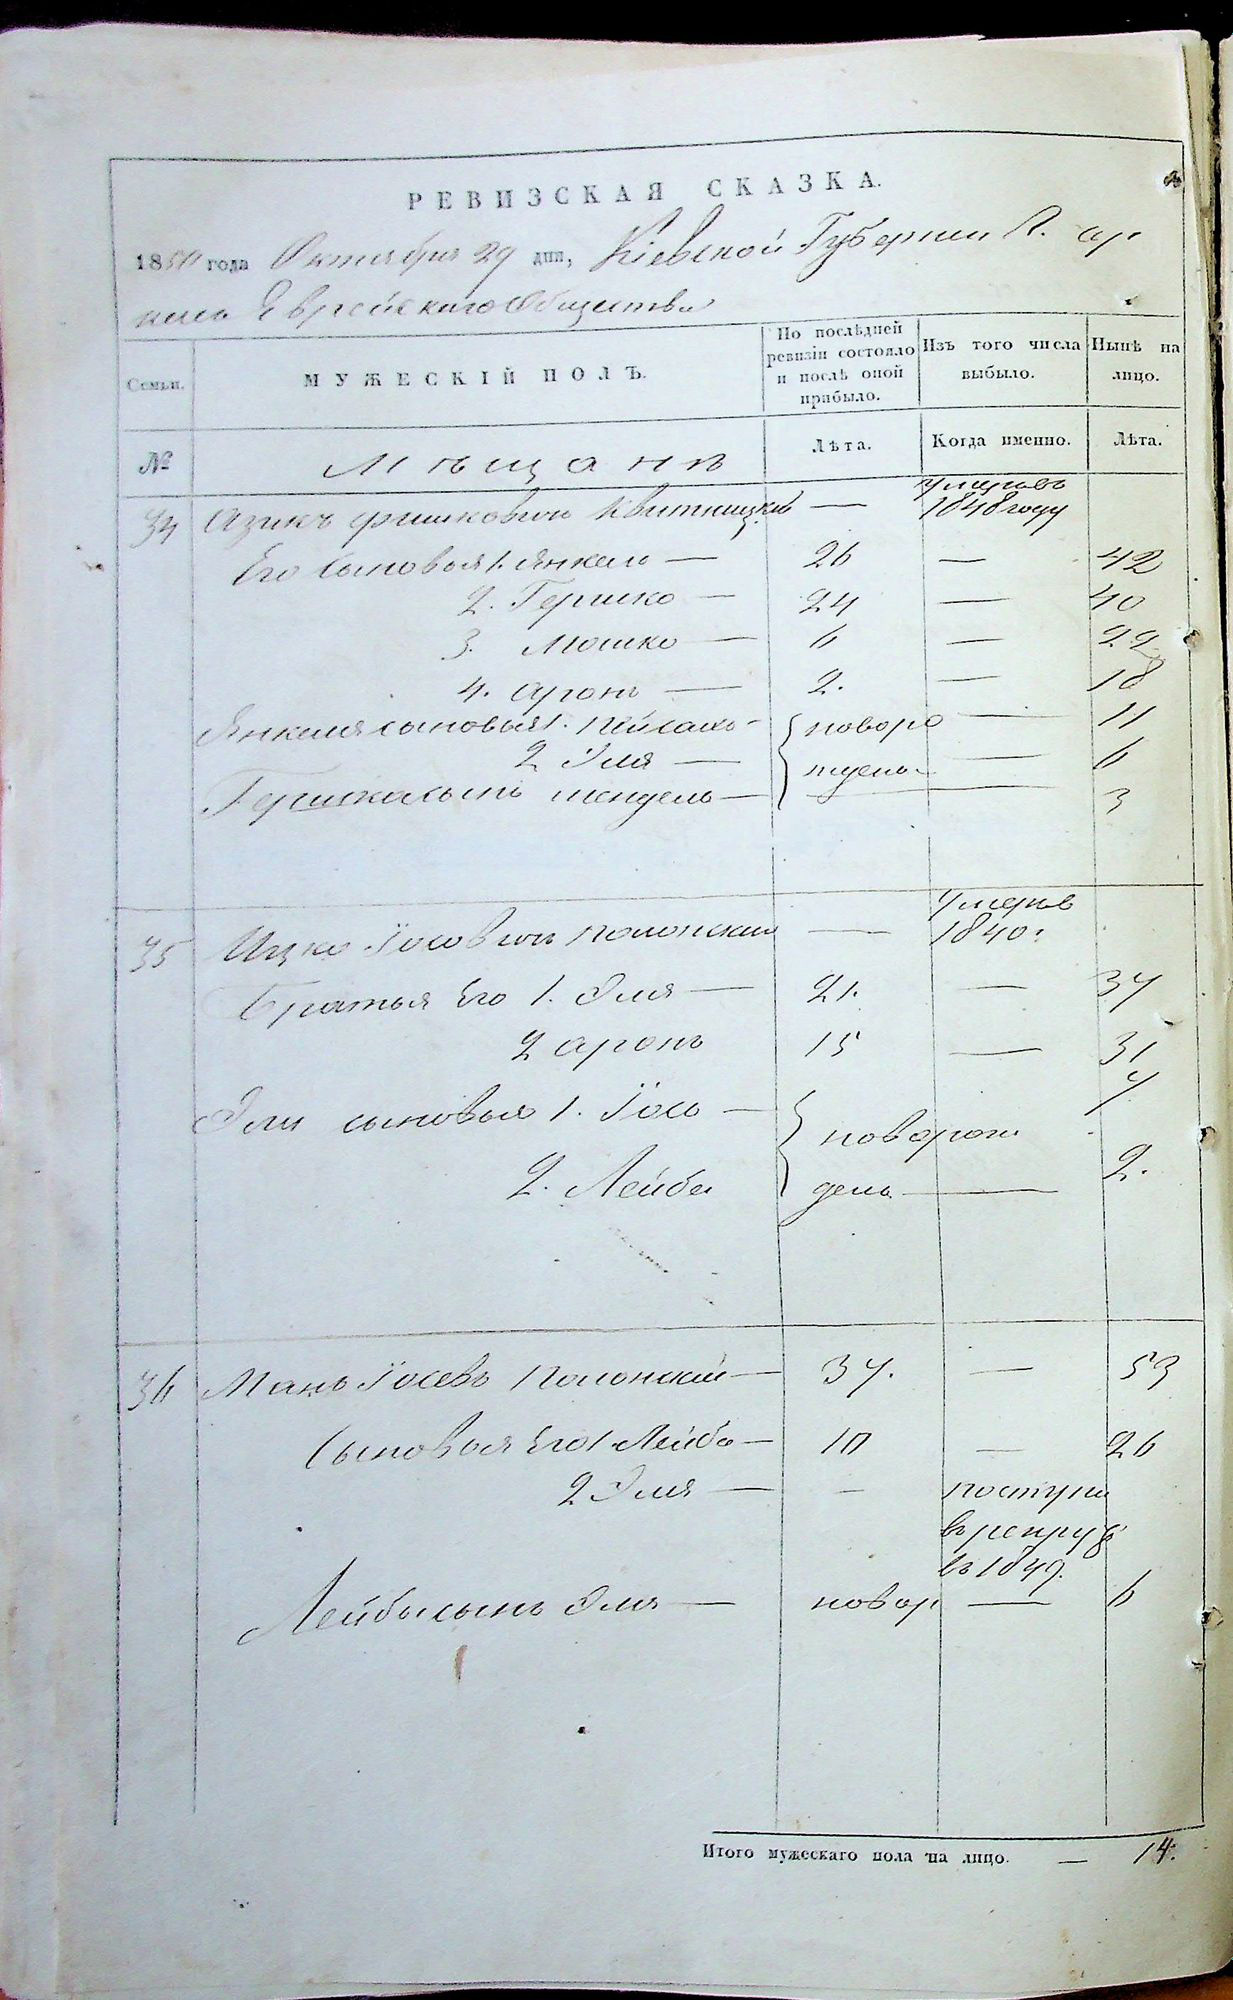 РЕВИЗСКАЯ СКАЗКА.
1850 года Октября 29 дня, Кіевской Губерніи
Еврейскаго Общества
Семьи.
МУЖЕСКІЙ ПОЛЪ.
По послѣдней ревизіи состояло и послѣ оной прибыло.
Изъ того числа выбыло.
Нынѣ на лицо.
№
Мѣщанъ
Лѣта.
Когда именно.
Лѣта.
34 Азикъ Фишковичъ Квитницкій — умеръ въ 1848 году
Его сыновья 1. Янкель — 26 — 42
2. Гершко — 24 — 40
3. Мошко — 6 — 22
4. Аронъ — 2. — 18
Янкеля сыновья 1. Пейсахъ — новоро — 11
2 Эля — ждены — 6
Гершка сынъ Мендель — 3
35 Ицко Іосовичъ Полонскій — умеръ въ 1840.
Братья Его 1. Эля — 21. — 37
2 Аронъ 15 — 31
Эли сыновья 1. Іось — новорож 7
2. Лейба дены — 2.
36 Іосевъ Полонскій — 37. — 53
Сыновья Его 1 Лейба — 10 — 26
2 Эля — — поступи
в рекрут
въ 1849.
Лейбы сынъ Эля — новор — 6
Итого мужескаго пола на лицо. — 14.